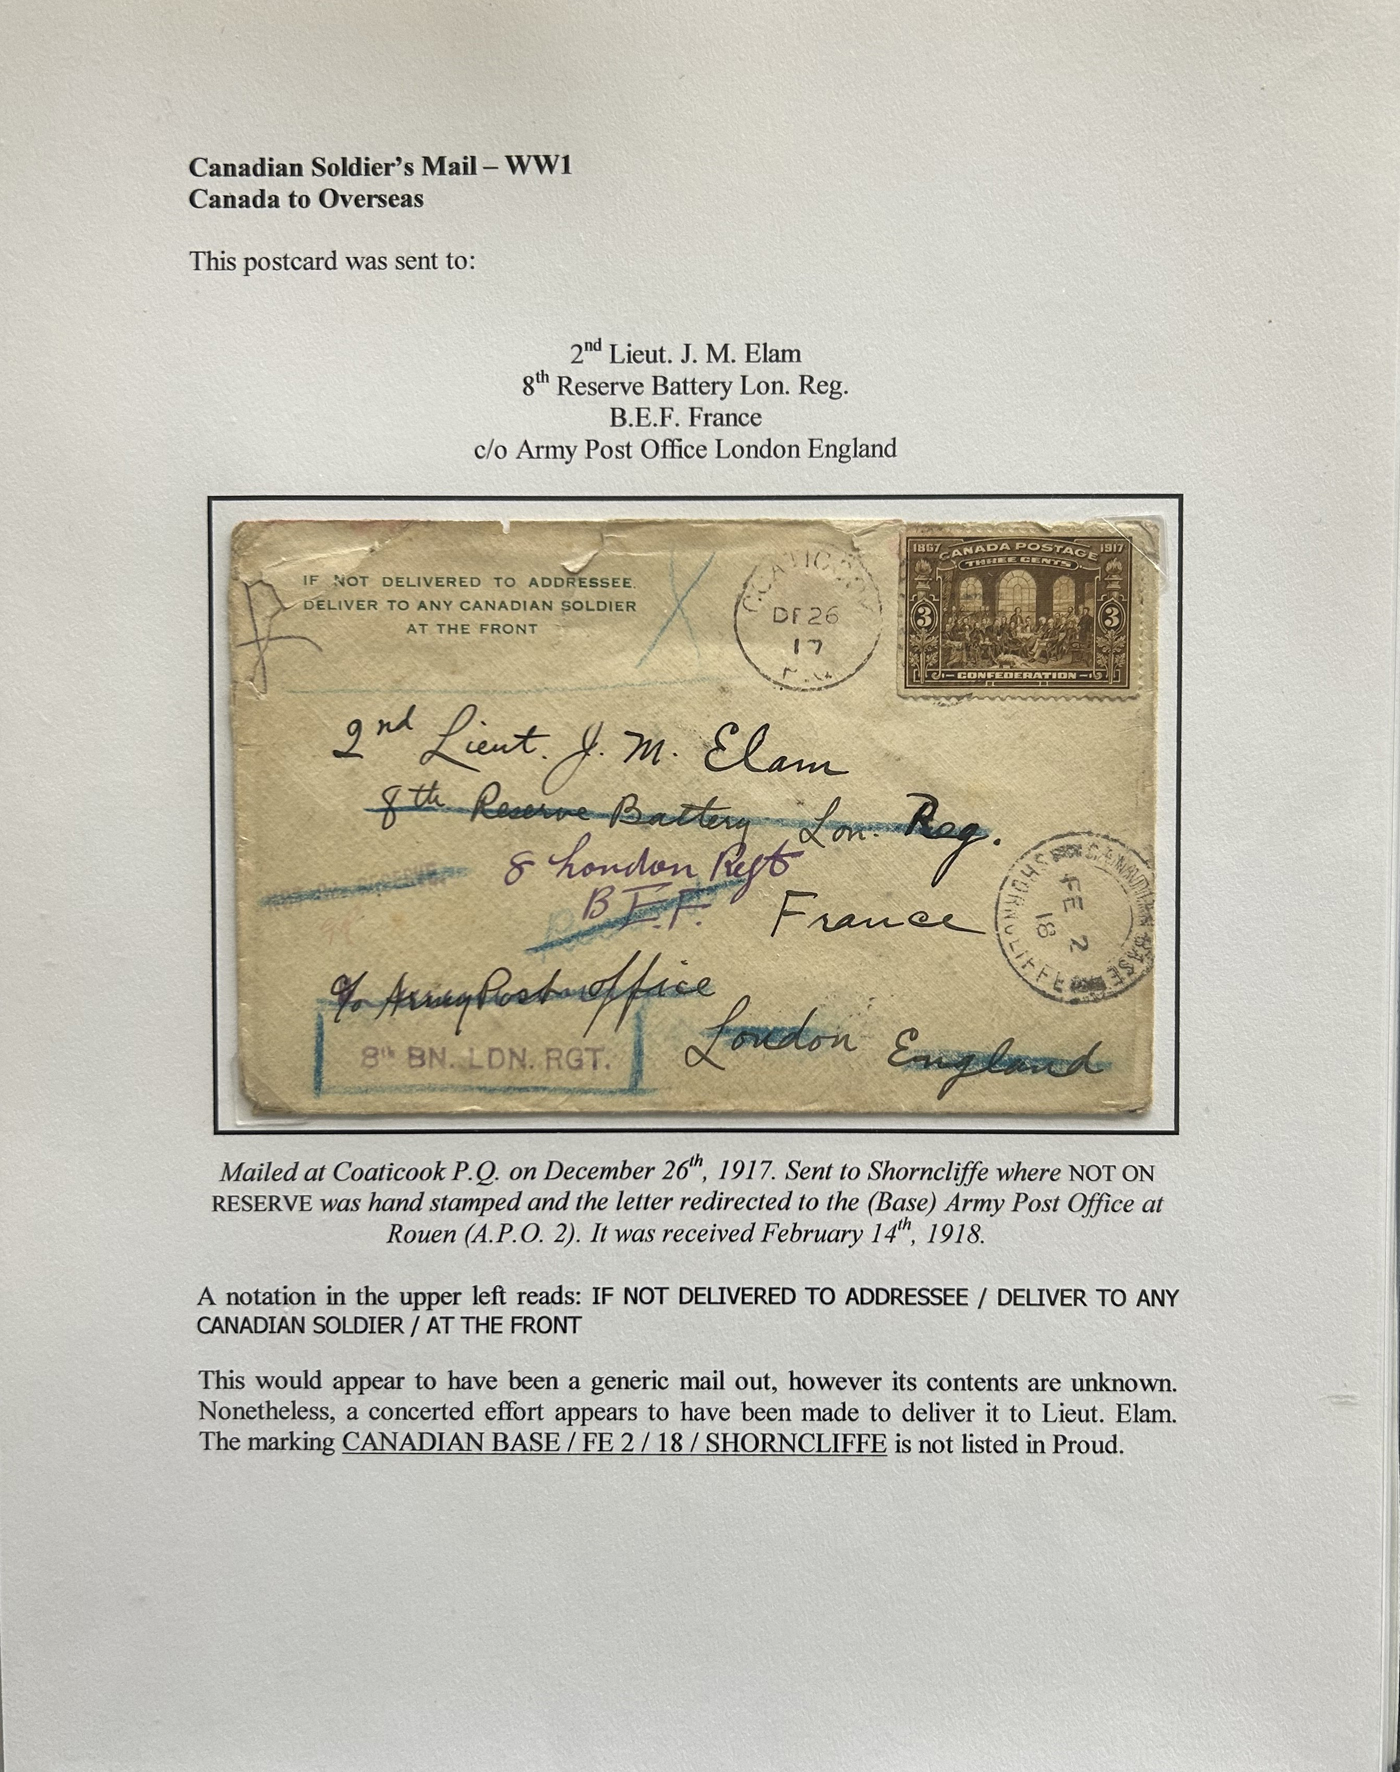 Canadian Soldier's Mail – WW1
Canada to Overseas
This postcard was sent to:
2nd Lieut. J. M. Elam
8th Reserve Battery Lon. Reg.
B.E.F. France
c/o Army Post Office London England
IF NOT DELIVERED TO ADDRESSEE.
DELIVER TO ANY CANADIAN SOLDIER
AT THE FRONT
DE 26
17
P.Q.
1867 CANADA POSTAGE 1917
THREE CENTS
3 3
CONFEDERATION
2nd Lieut. J. M. Elam
8th Reserve Battery Lon. Reg.
8 London Regt
RESERVE
B.E.F. France
CANADIAN BASE
FE 2
18
SHORNCLIFFE
c/o Army Post Office
London England
8th BN. LDN. RGT.
Mailed at Coaticook P.Q. on December 26th, 1917. Sent to Shorncliffe where NOT ON
RESERVE was hand stamped and the letter redirected to the (Base) Army Post Office at
Rouen (A.P.O. 2). It was received February 14th, 1918.
A notation in the upper left reads: IF NOT DELIVERED TO ADDRESSEE / DELIVER TO ANY
CANADIAN SOLDIER / AT THE FRONT
This would appear to have been a generic mail out, however its contents are unknown.
Nonetheless, a concerted effort appears to have been made to deliver it to Lieut. Elam.
The marking CANADIAN BASE / FE 2 / 18 / SHORNCLIFFE is not listed in Proud.